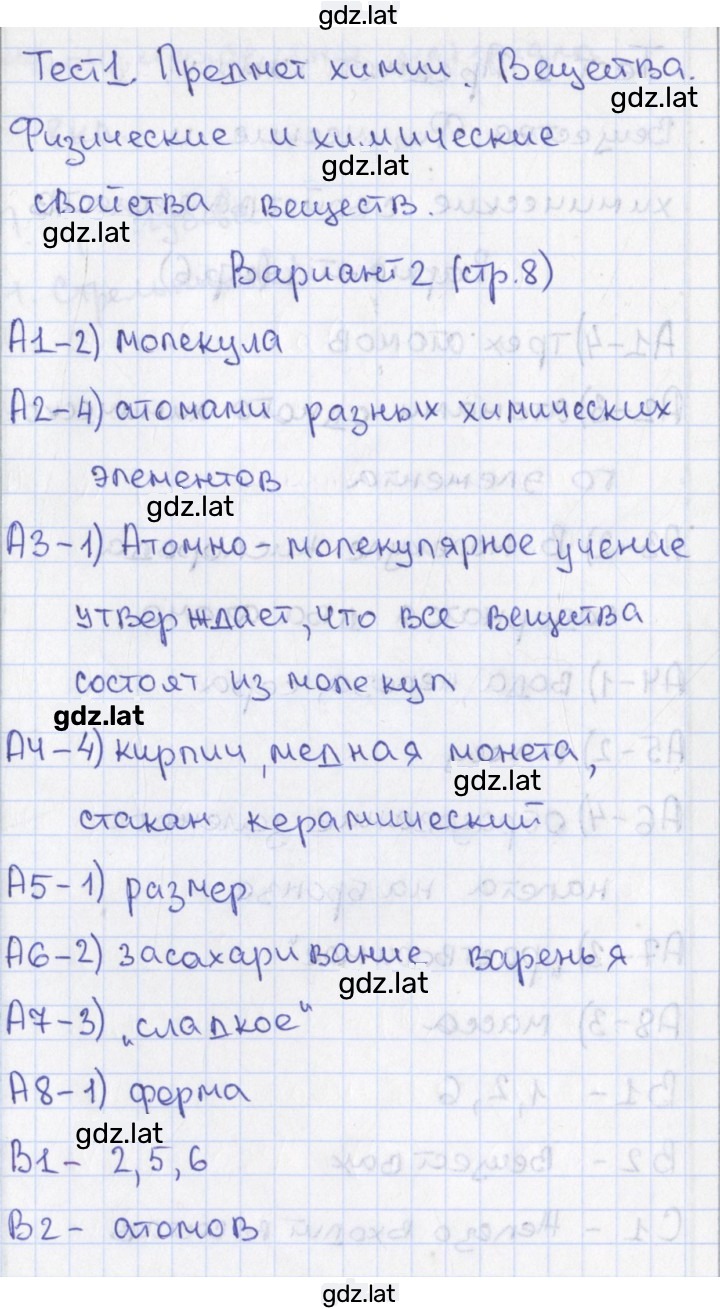 gdz.lat
Тест1. Предмет химии. Вещества.
gdz.lat
Физические и химические
gdz.lat
свойства веществ.
gdz.lat
Вариант 2 (стр.8)
А1-2) молекула
А2-4) атомами разных химических
элементов
gdz.lat
А3-1) Атомно-молекулярное учение
утверждает, что все вещества
состоят из молекул
gdz.lat
А4-4) кирпич, медная монета,
gdz.lat
стакан керамический
А5-1) размер
А6-2) засахаривание варенья
gdz.lat
А7-3) „сладкое"
А8-1) форма
gdz.lat
В1- 2,5,6
В2- атомов
gdz.lat